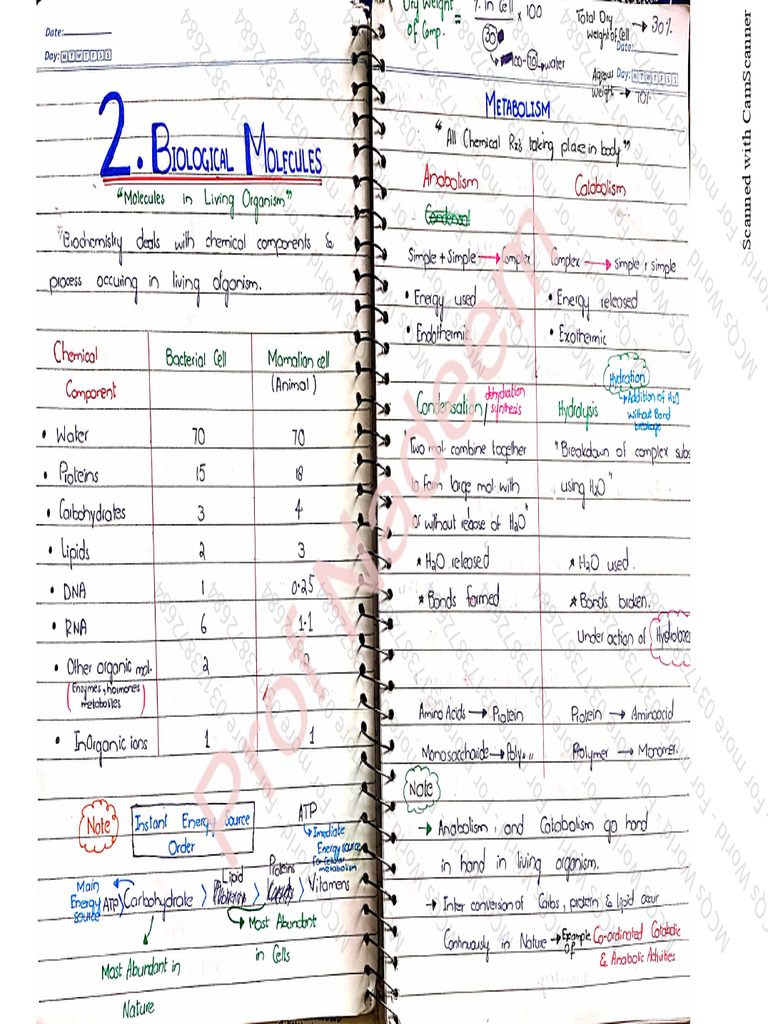 Date:
Day: M T W T F S S
2. BIOLOGICAL MOLECULES
"Molecules in Living Organism"
"Biochemisty deals with chemical components &
process occuring in living oганism.
Chemical Component | Bacterial Cell | Mamalian cell (Animal)
• Water 70 70
• Proteins 15 18
• Carbohydrates 3 4
• Lipids 2 3
• DNA 1 0.25
• RNA 6 1.1
• Other organic mol. 2 2
(Enzymes, hormones
metabolites)
• InOrganic ions 1 1
Note
Instant Energy source
Order
ATP
↳ Imediate
Energy source
for cellular
metabolism
Main
Energy
source
ATP > Carbohydrate > Lipid > Proteins > Vitamens
Most Abundant in
Nature
→ Most Abundant
in Cells
Dry Weight
of Comp. = % in Cell / 30 × 100
100-70 → water
Total Dry
weight of Cell → 30%
Date:
Day: M T W T F S S
Aqeous
Weight → 70%
METABOLISM
"All Chemical Rx's taking place in body"
Anabolism | Catabolism
Simple + Simple → Complex | Complex → simple + simple
• Energy used | • Energy released
• Endothermic | • Exothermic
Hydration
↳ Addition of H₂O
without Bond
breakage
Condensation/dehydration synthesis | Hydrolysis
"Two mol. combine together | "Breakdown of complex subs
to form large mol. with | using H₂O"
or without release of H₂O"
* H₂O released | * H₂O used.
* Bonds formed | * Bonds broken.
Under action of
Amino Acids → Protein | Protein → Aminoacid
Monosaccharide → Poly " | Polymer → Monomer.
Note
→ Anabolism, and Catabolism go hand
in hand in living organism.
→ Inter conversion of Carbs, protein & lipid occur
Continuously in Nature → Example of Co-ordinated Catabolic
& Anabolic Activities
Prof Nadeem
MCQs World For more 03177387684
Scanned with CamScanner